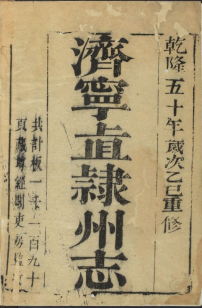 乾隆五十年歲次乙巳重修
濟寧直隸州志
共計板一千二百九十
頁藏尊經閣吏房